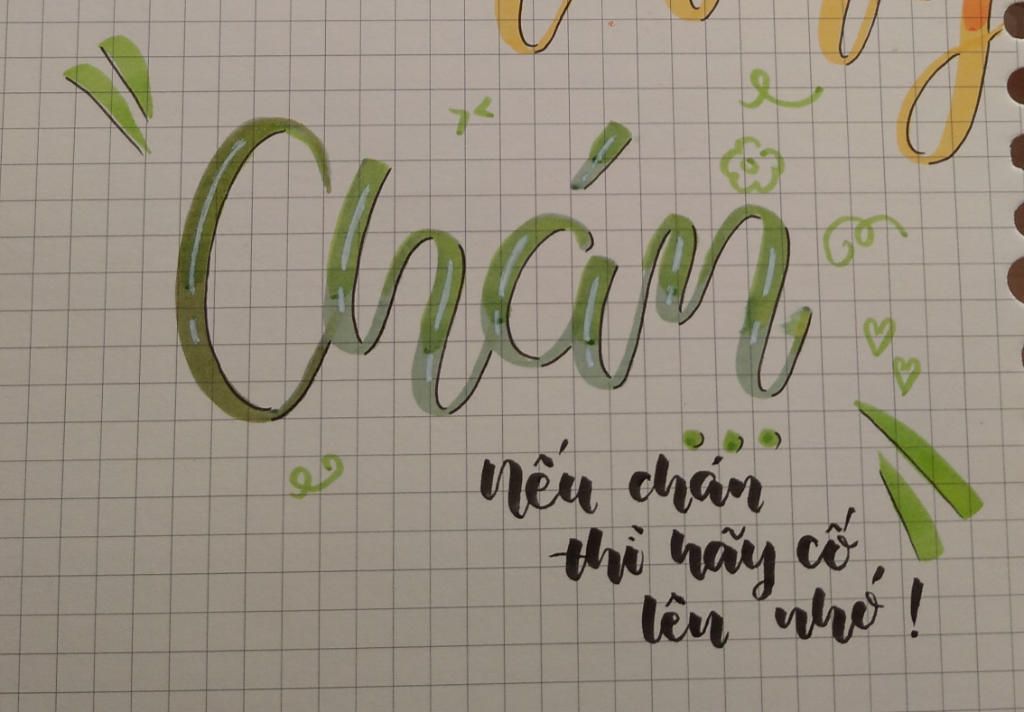 Chán
...
nếu chán
thì hãy cố
lên nhớ!